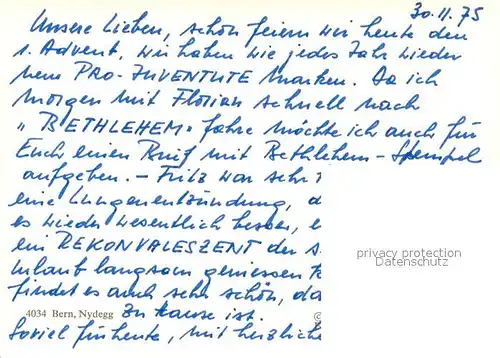 30.11.75
Unsere Lieben, schon feiern wir heute den
1. Advent, wir haben wie jedes Jahr wieder
neue PRO-JUVENTUTE Marken. Da ich
morgen mit Florian schnell nach
„BETHLEHEM" fahre möchte ich auch für
Euch einen Brief mit Bethlehem-Stempel
aufgeben. – Fritz war sehr
eine Lungenentzündung, d
es wieder wesentlich besser, e
ein REKONVALESZENT der s
Urlaub langsam geniessen k
findet es auch sehr schön, da
zu Hause ist.
Soviel für heute, mit herzliche
4034 Bern, Nydegg
©
privacy protection
Datenschutz